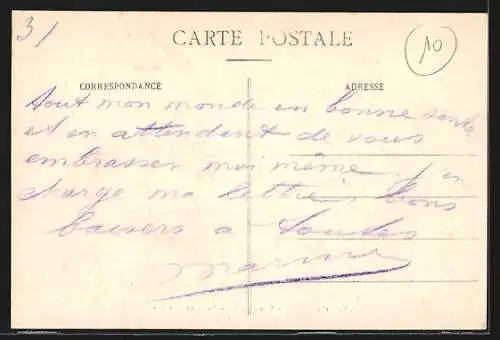 3/
CARTE POSTALE
10
CORRESPONDANCE
ADRESSE
tout mon monde en bonne santé
et en attendant de vous
embrasser moi même j'en
charge ma lettre bons
baisers a toutes